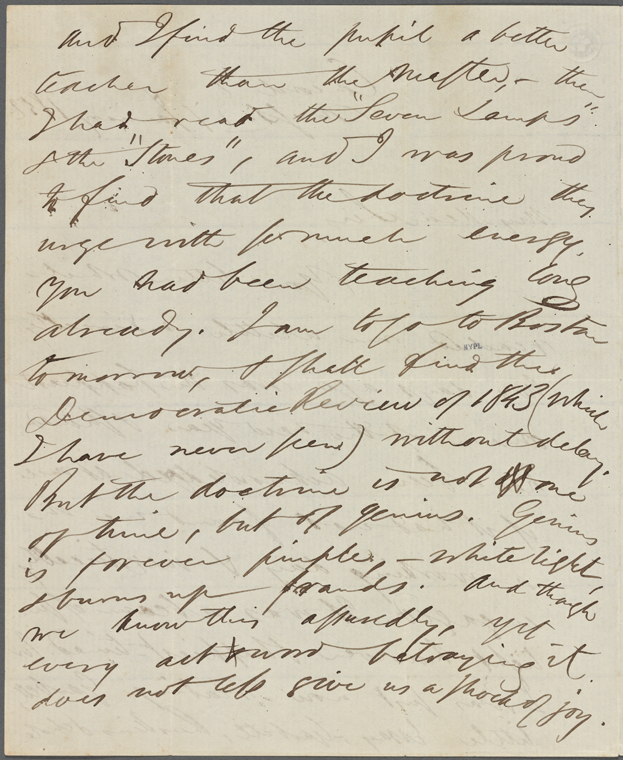 and I find the pupil a better
teacher than the Master, – then
I had read the "Seven Lamps"
& the "Stones", and I was proud
to find that the doctrine they
urge with so much energy,
you had been teaching long
already. I am to go to Boston
NYPL
tomorrow, & shall find the
Democratic Review of 1843 (which
I have never seen) without delay.
But the doctrine is not one
of time, but of genius. Genius
is forever simple, – white light,
& burns up frauds. And though
we know this assuredly, yet
every act & word betraying it
does not less give us a shock of joy.